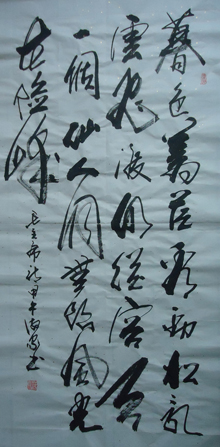 暮色苍茫看劲松乱
云飞渡仍从容天生
一个仙人洞无限风光
在险峰